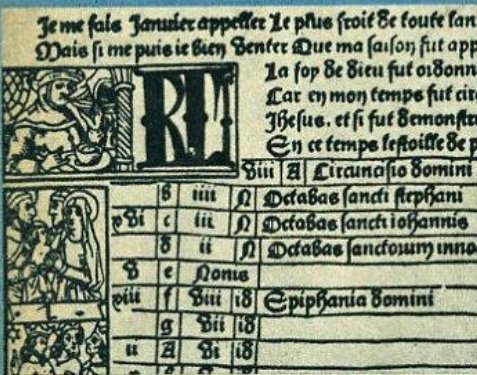 Je me fais Januier appeller Le plus froit de toute lan
Mais si me puis ie bien venter Que ma saison fut app
La foy de dieu fut ordonn
Car en mon temps fut circ
Jhesus. et si fut demonstr
En ce temps lestoille de p
KL
viii A Circuncisio domini
b iiii N Octabas sancti stephani
xvi c iii N Octabas sancti iohannis
d ii N Octabas sanctorum inno
v e Nonis
xiii f viii id Epiphania domini
g vii id
ii A vi id